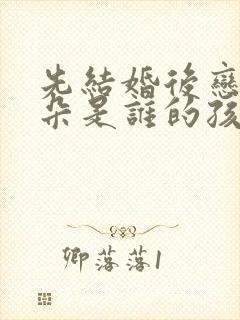 先結婚後戀
朵是誰的孩
卿落落1